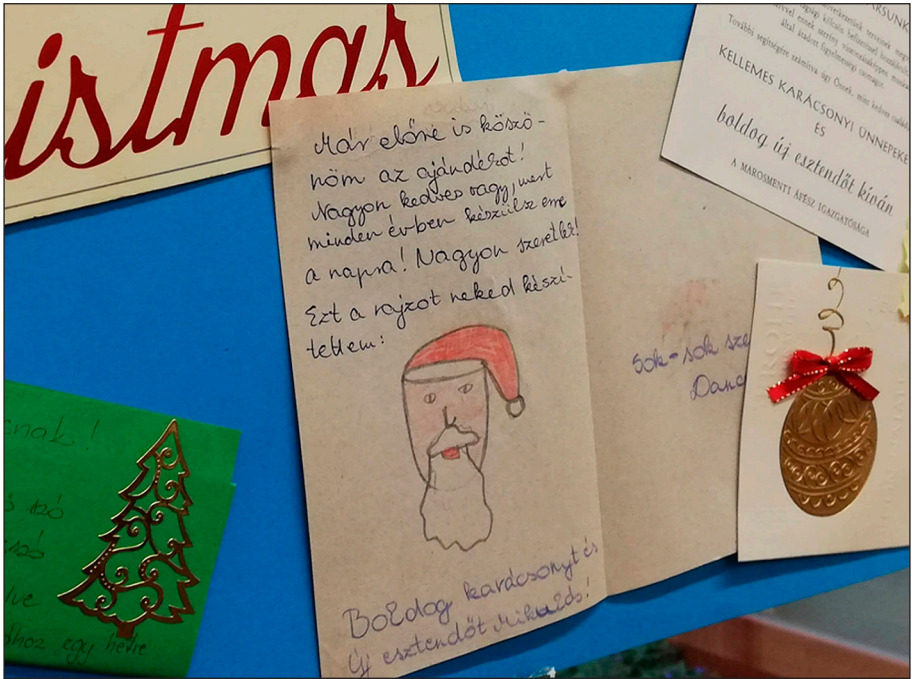 istmas
Már előre is köszö-
nöm az ajándékot!
Nagyon kedves vagy, mert
minden évben készülsz erre
a napra! Nagyon szeretlek!
Ezt a rajzot neked készí-
tettem:
Boldog karácsonyt és
új esztendőt Mikulás!
Sok-sok sze
Danc
További segítségére számítva úgy Önnek, mint kedves
KELLEMES KARÁCSONYI ÜNNEPEKE
ÉS
boldog új esztendőt kíván
A MAROSMENTI ÁFÉSZ IGAZGATÓSÁGA
snak!
szó
lve
hoz egy hétre